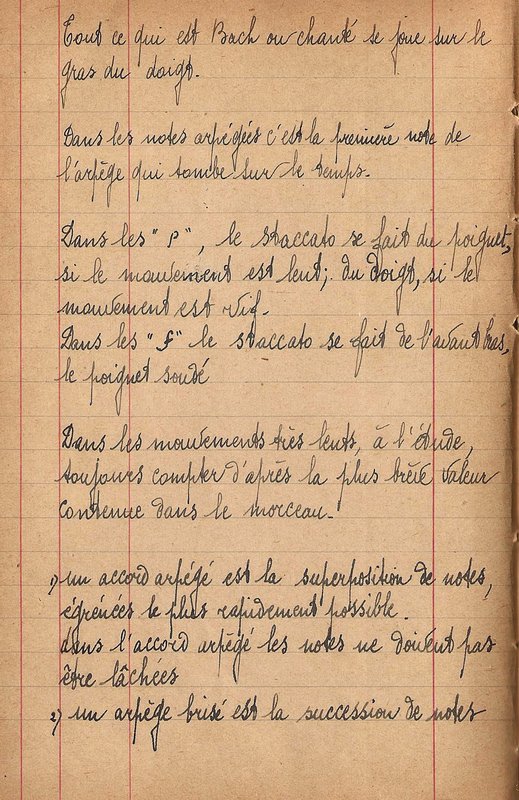 Tout ce qui est Bach ou chanté se joue sur le
gras du doigt.
Dans les notes arpégées c'est la première note de
l'arpège qui tombe sur le temps.
Dans les " p ", le staccato se fait du poignet,
si le mouvement est lent; du doigt, si le
mouvement est vif.
Dans les " f " le staccato se fait de l'avant bras,
le poignet soudé
Dans les mouvements très lents, à l'étude,
toujours compter d'après la plus brève valeur
contenue dans le morceau.
1) un accord arpégé est la superposition de notes,
égrénées le plus rapidement possible.
dans l'accord arpégé les notes ne doivent pas
être lâchées
2) un arpège brisé est la succession de notes